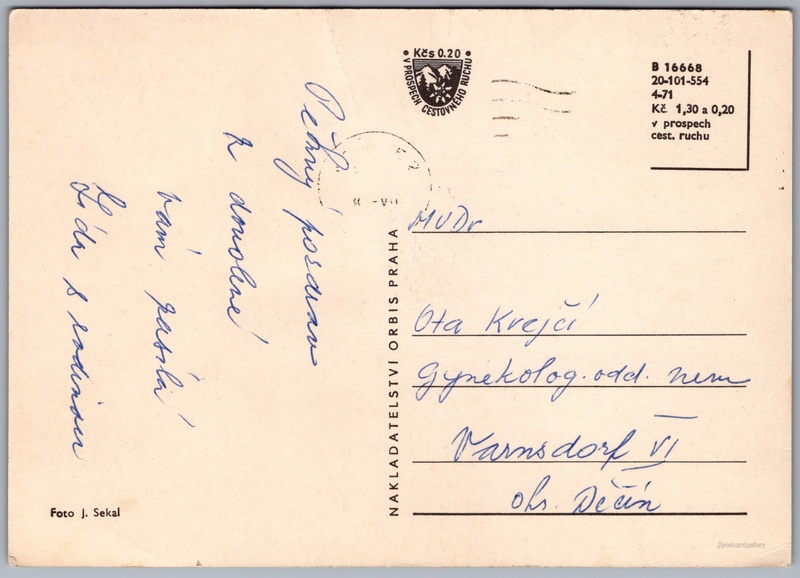 Kčs 0.20
V PROSPECH CESTOVNÉHO RUCHU
B 16668
20-101-554
4-71
Kč 1,30 a 0,20
v prospech
cest. ruchu
Pěkný pozdrav
z dovolené
vám posílá
Lída s rodinou
NAKLADATELSTVÍ ORBIS PRAHA
MVDr
Ota Krejčí
Gynekolog. odd. nem
Varnsdorf VI
okr. Děčín
Foto J. Sekal